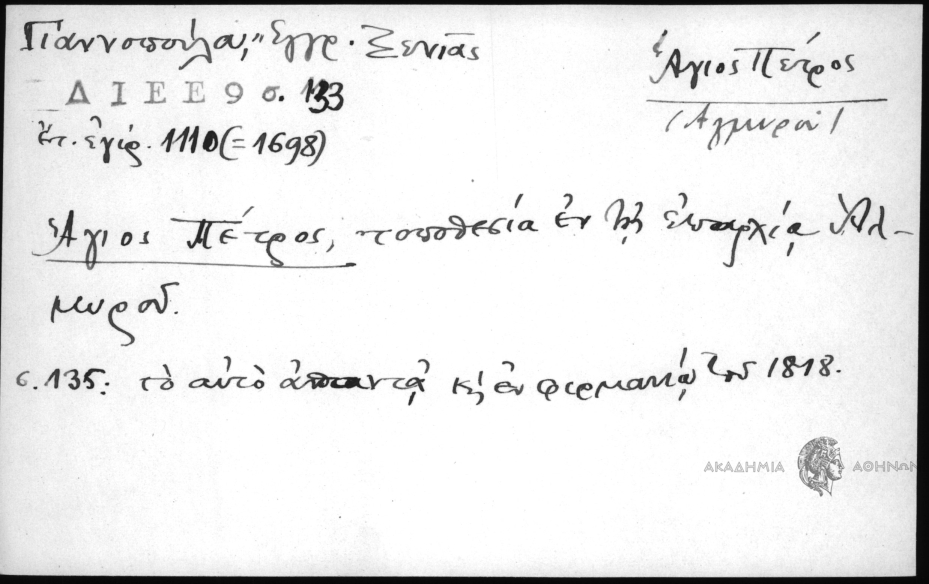 Γιαννοπούλου, "Εγγρ. Ξενιᾶς
ΔΙΕΕ 9 σ. 133
ἐτ. ἐγίρ. 1110 (= 1698)
Ἅγιος Πέτρος
(Ἁλμυροῦ)
Ἅγιος Πέτρος, τοποθεσία ἐν τῇ ἐπαρχίᾳ Ἁλ-
μυροῦ.
σ. 135: τὸ αὐτὸ ἀπαντᾷ κἠ ἐν φιρμανίῳ τοῦ 1818.
ΑΚΑΔΗΜΙΑ ΑΘΗΝΩΝ